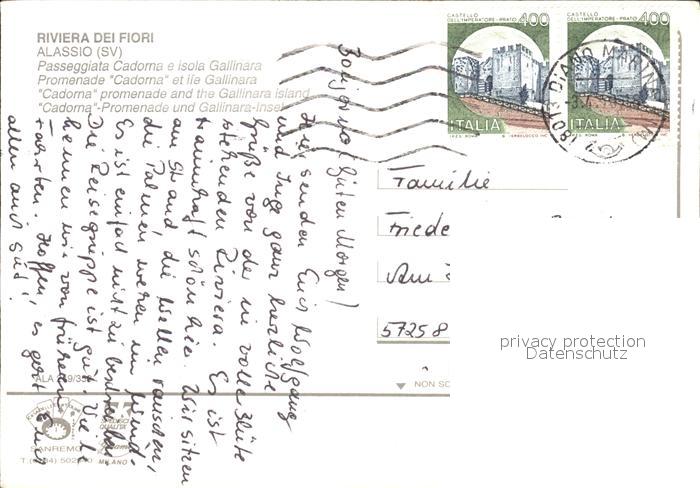 RIVIERA DEI FIORI
ALASSIO (SV)
Passeggiata Cadorna e isola Gallinara
Promenade "Cadorna" et ile Gallinara
"Cadorna" promenade and the Gallinara island
"Cadorna"-Promenade und Gallinara-Insel
CASTELLO DELL'IMPERATORE-PRATO 400
ITALIA
CASTELLO DELL'IMPERATORE-PRATO 400
ITALIA
18013 DIANO MARINA
Bonjorno! (Guten Morgen)
Hier senden Euch Wolfgang
und Inge ganz herzliche
Grüße von der in voller Blüte
stehenden Riviera. Es ist
traumhaft schön hier. Wir sitzen
am Strand, die Wellen rauschen,
die Palmen wehen im Wind.
Es ist einfach nicht zu beschreiben.
Die Reisegruppe ist gut. Viele
kennen wir von früheren
Fahrten. Hoffen, es geht Euch
allen auch gut!
Familie
Friede
Am
57258
privacy protection
Datenschutz
ALA
NON
SANREMO
MILANO